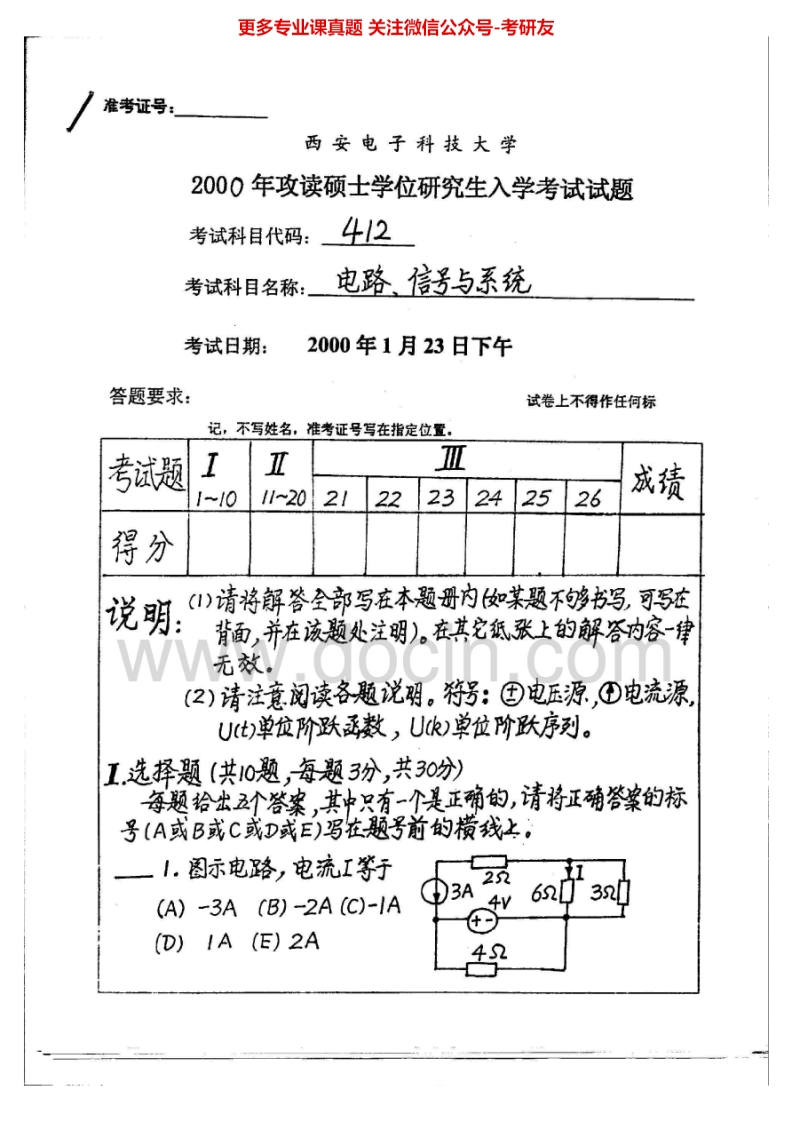 更多专业课真题 关注微信公众号-考研友
准考证号:
西安电子科技大学
2000年攻读硕士学位研究生入学考试试题
考试科目代码: 412
考试科目名称: 电路、信号与系统
考试日期: 2000年1月23日下午
答题要求: 试卷上不得作任何标
记,不写姓名,准考证号写在指定位置。
考试题 I II III 成绩
1~10 11~20 21 22 23 24 25 26
得分
说明: (1)请将解答全部写在本题册内(如某题不够书写,可写在
背面,并在该题处注明)。在其它纸张上的解答内容一律
无效。
www.docin.com
(2)请注意阅读各题说明。符号: 电压源, 电流源,
U(t)单位阶跃函数, U(k)单位阶跃序列。
I.选择题(共10题,每题3分,共30分)
每题给出五个答案,其中只有一个是正确的,请将正确答案的标
号(A或B或C或D或E)写在题号前的横线上。
1. 图示电路,电流I等于
(A) -3A (B) -2A (C) -1A
(D) 1A (E) 2A
2Ω I
3A 4V 6Ω 3Ω
+ -
4Ω